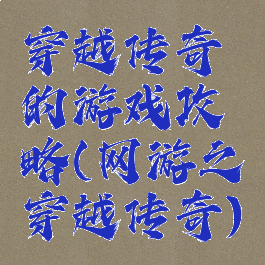 穿越传奇
的游戏攻
略(网游之
穿越传奇)